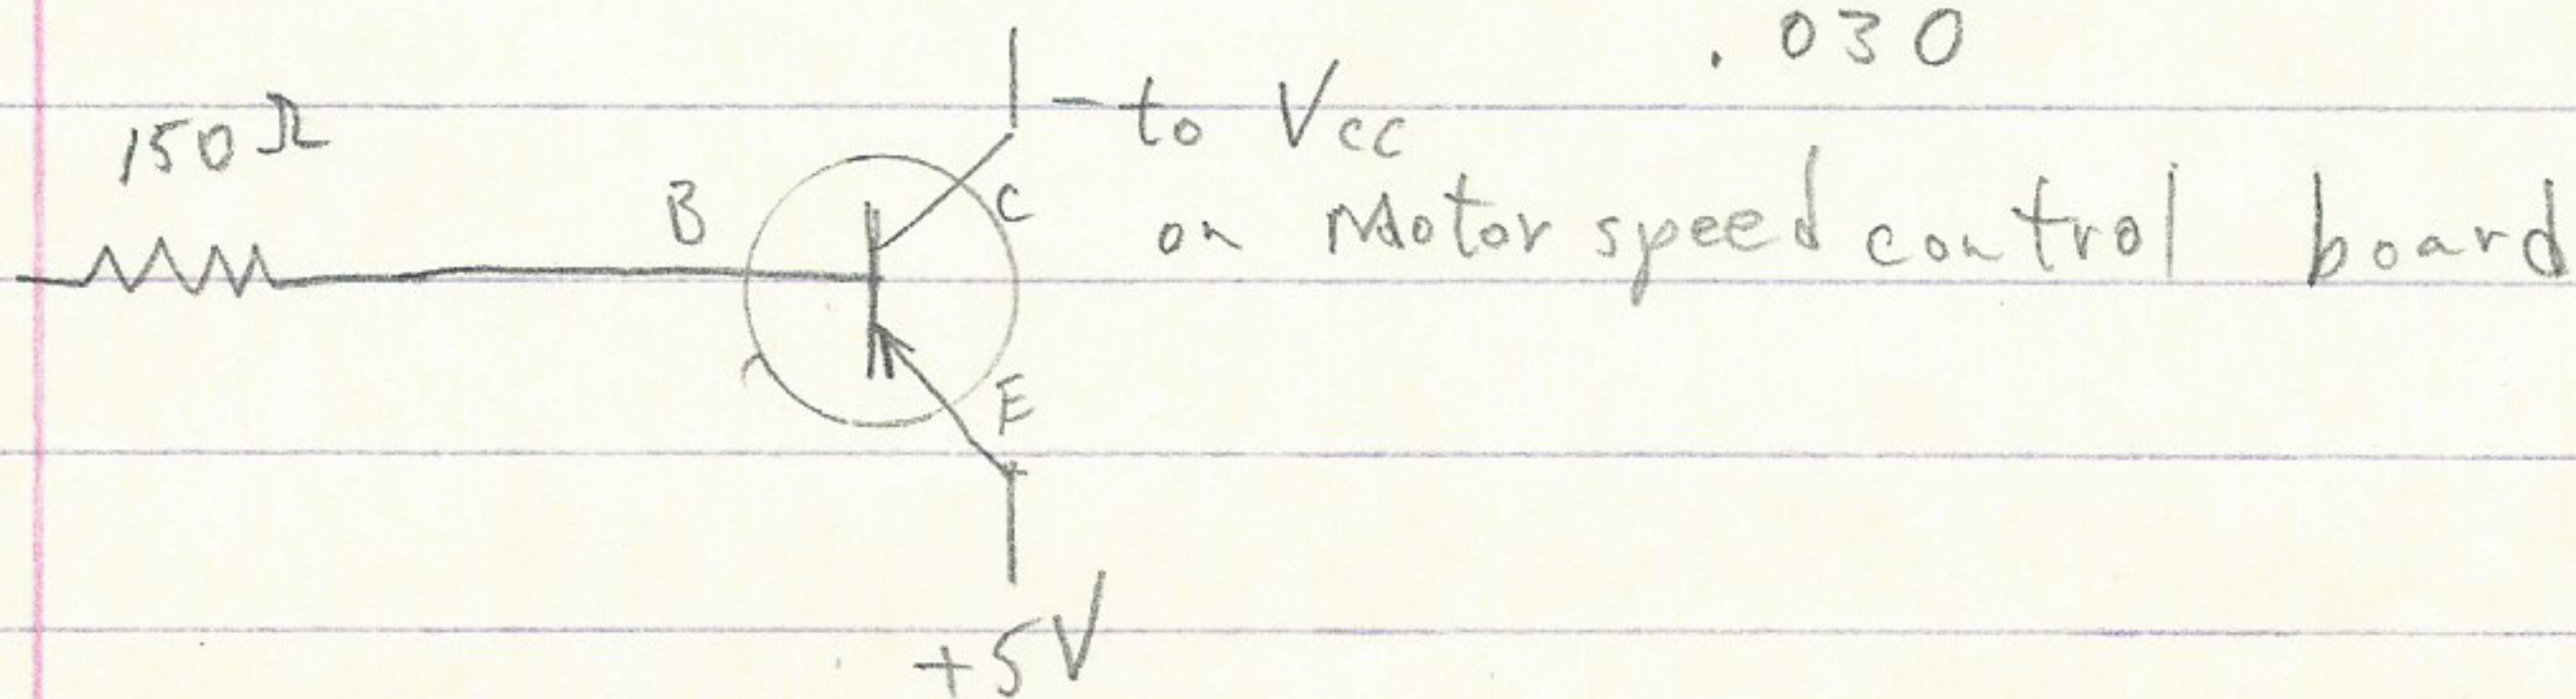 .030
150Ω
- to Vcc
B
C
on Motor speed control board
E
+5V